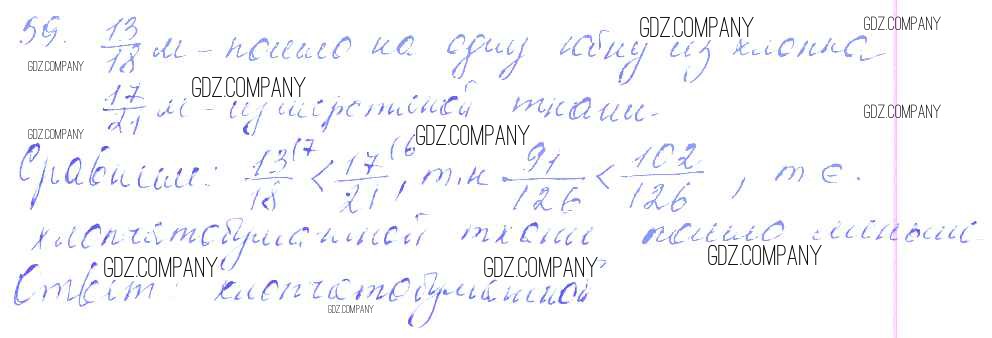 59. 13/18 м - пошло на одну юбку из хлопка
17/21 м - из шерстяной ткани.
Сравним: 13/18 (7 < 17/21 (6, т.к 91/126 < 102/126, т е.
хлопчатобумажной ткани пошло меньше
Ответ: хлопчатобумажной
GDZ.COMPANY
GDZ.COMPANY
GDZ.COMPANY
GDZ.COMPANY
GDZ.COMPANY
GDZ.COMPANY
GDZ.COMPANY
GDZ.COMPANY
GDZ.COMPANY
GDZ.COMPANY
GDZ.COMPANY